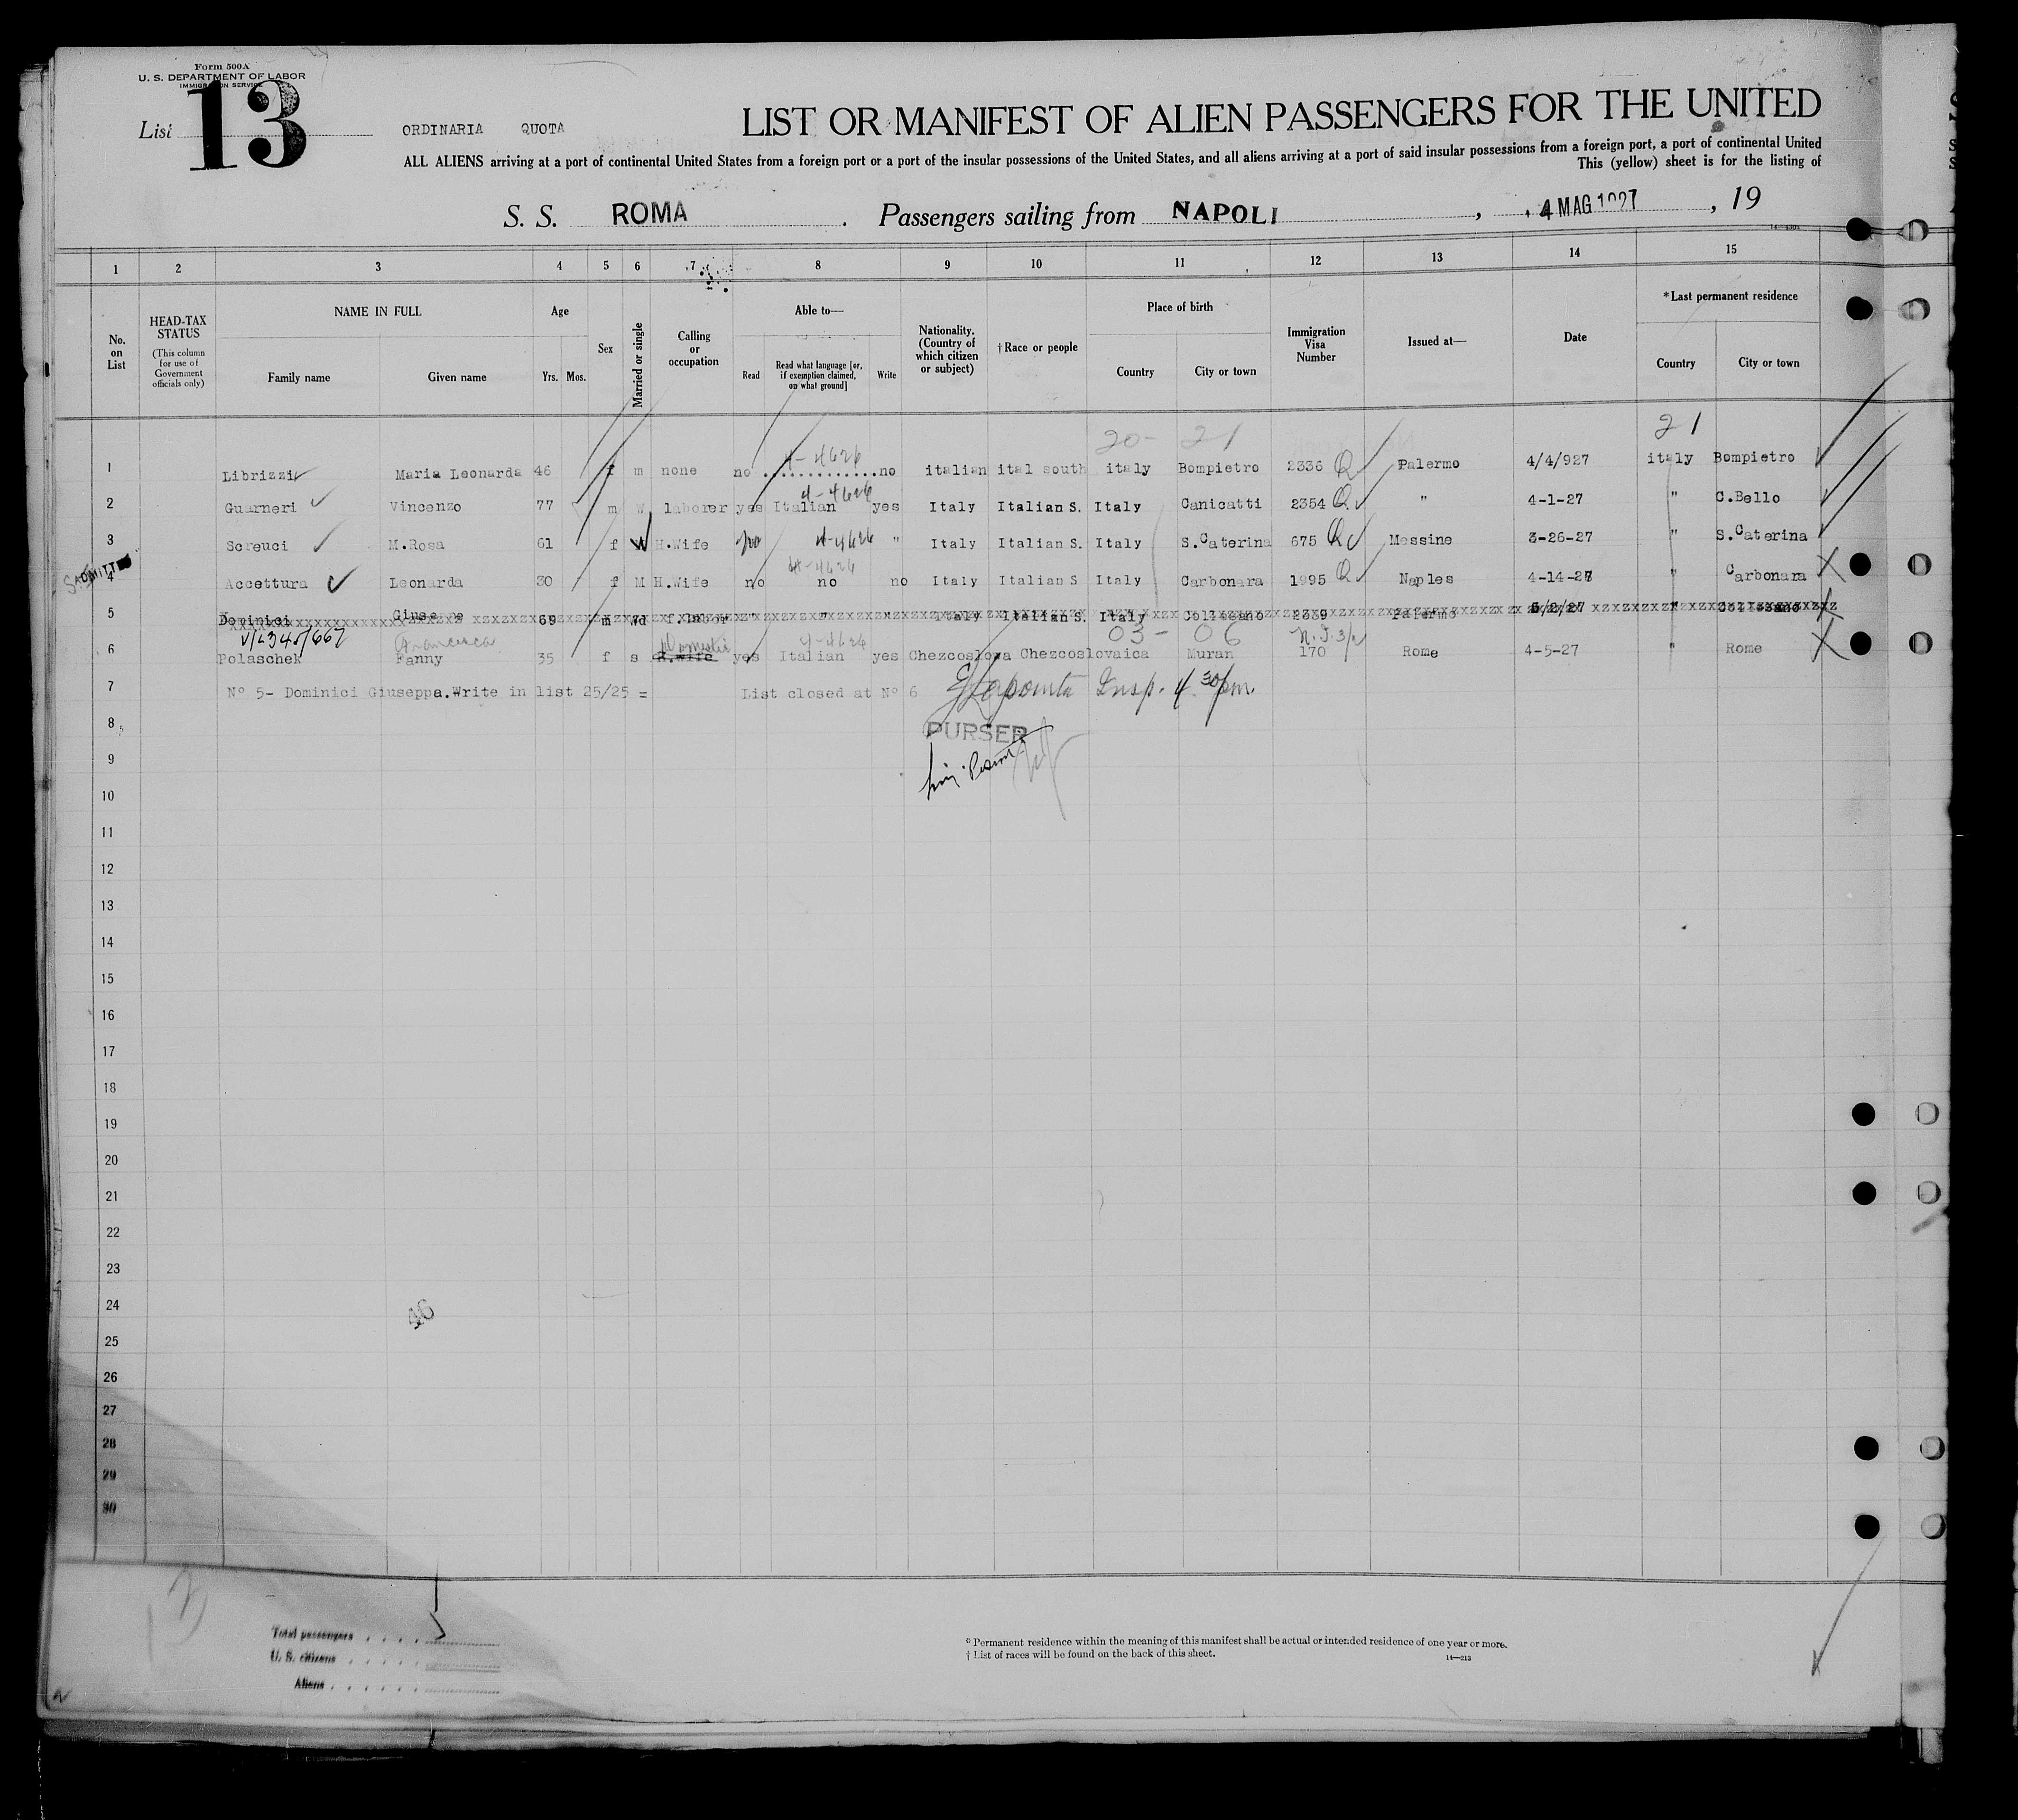 Form 500A
U. S. DEPARTMENT OF LABOR
IMMIGRATION SERVICE
List 13
ORDINARIA QUOTA
LIST OR MANIFEST OF ALIEN PASSENGERS FOR THE UNITED
ALL ALIENS arriving at a port of continental United States from a foreign port or a port of the insular possessions of the United States, and all aliens arriving at a port of said insular possessions from a foreign port, a port of continental United
This (yellow) sheet is for the listing of
S. S. ROMA . Passengers sailing from NAPOLI , 4 MAG 1927 , 19
1 2 3 4 5 6 7 8 9 10 11 12 13 14 15
No. on List
HEAD-TAX STATUS (This column for use of Government officials only)
NAME IN FULL
Family name Given name
Age
Yrs. Mos.
Sex
Married or single
Calling or occupation
Able to—
Read Read what language [or, if exemption claimed, on what ground] Write
Nationality. (Country of which citizen or subject)
† Race or people
Place of birth
Country City or town
Immigration Visa Number
Issued at—
Date
*Last permanent residence
Country City or town
20- 21 21
4-4626
1 Librizzi Maria Leonarda 46 f m none no no italian ital south italy Bompietro 2336 Q Palermo 4/4/927 italy Bompietro
4-4626
2 Guarneri Vincenzo 77 m W laborer yes Italian yes Italy Italian S. Italy Canicatti 2354 Q " 4-1-27 " C.Bello
3 Screuci M.Rosa 61 f W H.Wife no 4-4626 " Italy Italian S. Italy S.Caterina 675 Q Messine 3-26-27 " S.Caterina
ADMITTED
4-4626
4 Accettura Leonarda 30 f M H.Wife no no no Italy Italian S Italy Carbonara 1995 Q Naples 4-14-27 " Carbonara
5 Dominici Giuseppe 69 m Wd f.labor " " " Italy Italian S. Italy Collesano 2339 Palermo 5/2/27 " Collesano
V/-345/667 Francesca Domestic 4-4626 03- 06 N.I.
6 Polaschek Fanny 35 f s H.wife yes Italian yes Chezcoslova Chezcoslovaica Muran 170 Rome 4-5-27 " Rome
7 Nº 5- Dominici Giuseppa.Write in list 25/25 = List closed at Nº 6 Insp. 4 30 pm.
8 PURSER
9
10
11
12
13
14
15
16
17
18
19
20
21
22
23
24
46
25
26
27
28
29
30
Total passengers
U. S. citizens
Aliens
* Permanent residence within the meaning of this manifest shall be actual or intended residence of one year or more.
† List of races will be found on the back of this sheet.
14—213